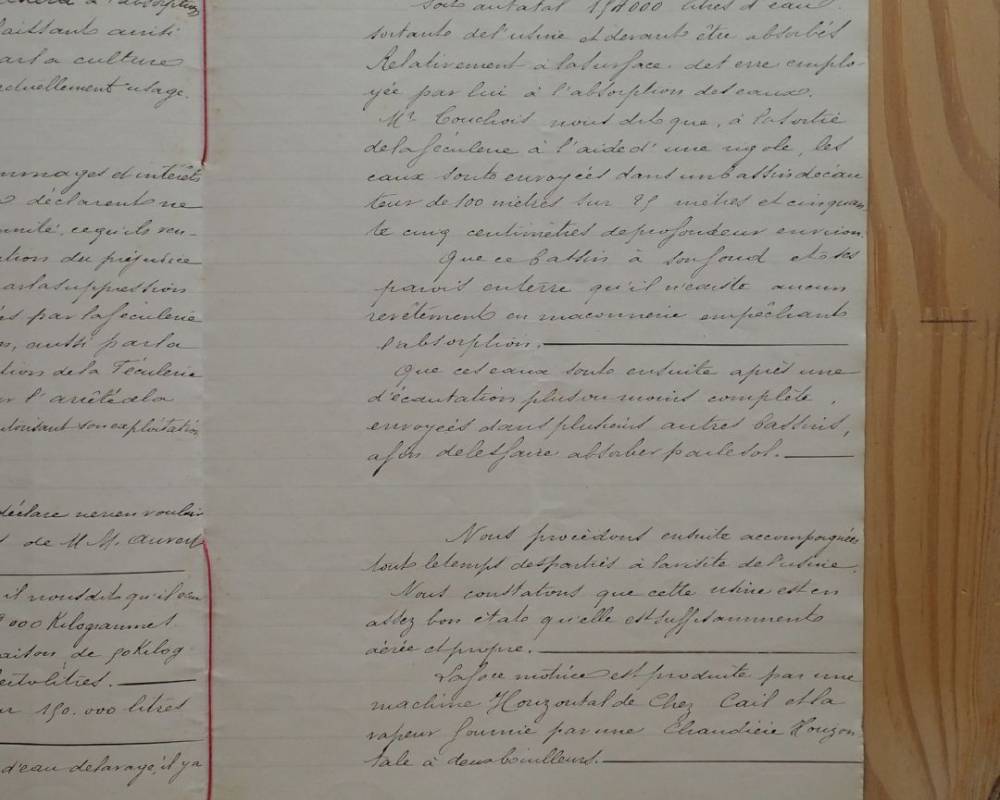 à l'absorption
aissant ainsi
par la culture
actuellement usage.
mmages et intérêts
déclarent ne
mnité, ce qu'ils ren-
ation du préjudice
par la suppression
es par la féculerie
n, aussi par la
tion de la Féculerie
r l'arrêté de la
utorisant son exploitation
déclare ne rien vouloir
de M M. Auvert
il nous dit qu'il
000 Kilogrammes
aison de 50 Kilog
ectolitres.
ur 150.000 litres
d'eau de lavage, il y a
soit au total 154000 litres d'eau
sortants de l'usine et devant être absorbés
Relativement à la surface de terre emplo-
yée par lui à l'absorption des eaux.
Mr Couchois nous dit que, à la sortie
de la féculerie à l'aide d'une rigole, les
eaux sont envoyées dans un bassin décan
teur de 100 mètres sur 25 mètres et cinquan
te cinq centimètres de profondeur environ.
Que ce bassin à son fond et ses
parois en terre qu'il n'existe aucun
revêtement en maconnerie empêchant
l'absorption.
Que ces eaux sont ensuite après une
décantation plus ou moins complète,
envoyées dans plusieurs autres bassins,
afin de les faire absorber par le sol.
Nous procédons ensuite accompagnés
tout le temps des parties à la visite de l'usine.
Nous constatons que cette usine est en
assez bon état qu'elle est suffisamment
aérée et propre.
La force motrice est produite par une
machine Horizontal de Chez Cail et la
vapeur fournie par une Chaudière Horizon
tale à deux bouilleurs.